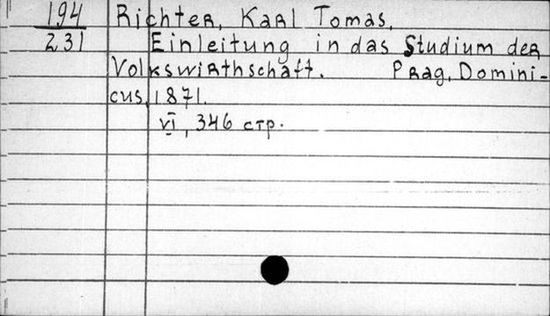 194 Richter, Karl Tomas.
231 Einleitung in das Studium der
Volkswirthschaft. Prag, Domini-
cus, 1871.
VI, 346 стр.